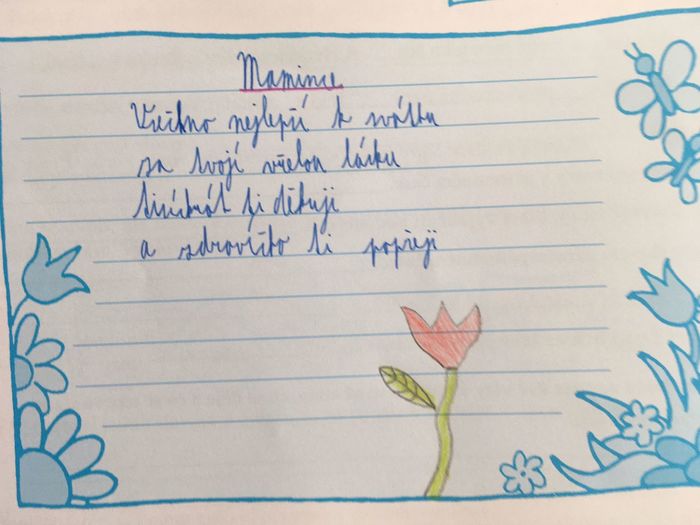 Mamince
Všechno nejlepší k svátku
za tvojí včelou lásku
tisíckrát ti děkuji
a zdravíčko ti popřeji